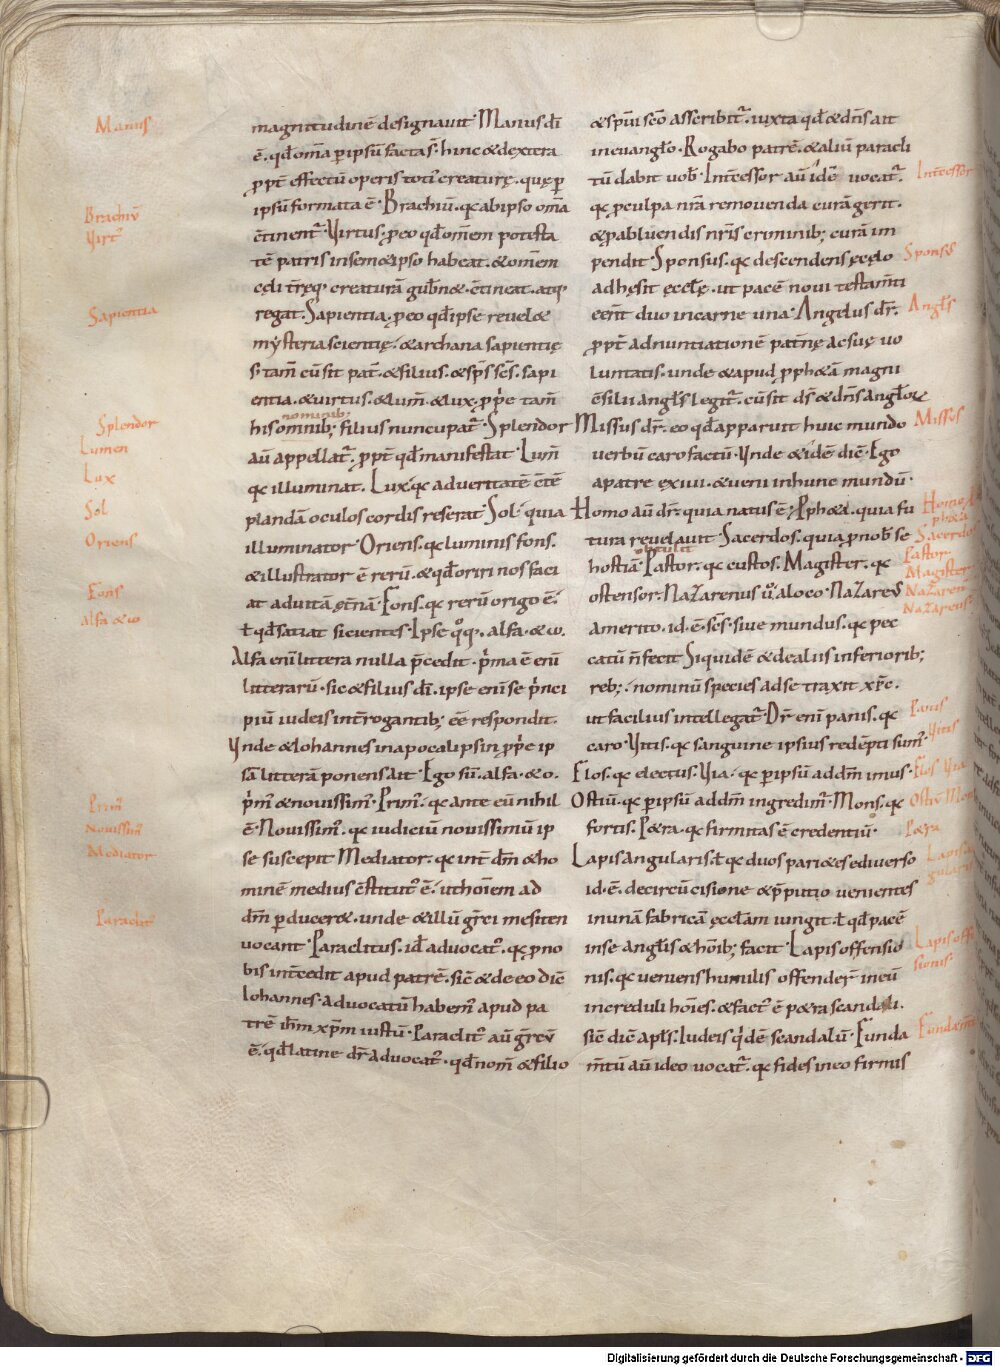 Manus
Brachiū
Virtꝰ
Sapientia
Splendor
Lumen
Lux
Sol
Oriens
Fons
alfa & ω
Primꝰ
Novissimꝰ
Mediator
Paraclitꝰ
magnitudinē designauit· Manus dī
ē. qđ omīa p ipsū facta s̄· hinc & dextera
ꝓpt̄ effectū operis totiꝰ creaturę. quę p
ipsū formata ē· Brachiū. qc ab ipso omīa
c̄tinent᷑· Virtus. ꝓ eo qđ omnem potesta
tē patris in sem&ipso habeat. & omnem
cęli tr̄ęq; creaturā gub̄n&. c̄tineat. atq;
regat. Sapientia. ꝓ eo qđ ipse reuel&
mysteria scientię. & archana sapientię
s; tam̄ cū sit pat̄. & filius. & sp̄s sc̄s. sapi
entia. & uirtus. & lum̄. & lux. ꝓprie tam̄
nominib;
his omnib; filius nuncupat᷑· Splendor
aū appellat᷑. ꝓpt̄ qđ manifestat· Lum̄
qc illuminat. Lux. qc ad ueritatē c̄tē
plandā oculos cordis reserat· Sol· quia
illuminator· Oriens. qc luminis fons.
& illustrator ē rerū. & qđ oriri nos faci
at ad uitā ęt̄nā· Fons. qc rerū origo ē.
ł qđ satiat sicientes· Ipse qꝫqꝫ. alfa. & ω.
Alfa enī littera nulla p̄cedit· p̄ma ē enī
litterarū· sic & filius dī. ipse enī se p̄nci
piū iudeis int̄rogantib; eē respondit.
Vnde & Iohannes in apocalipsin ꝓprie ip
sā litterā ponens ait· Ego sū. alfa· & o.
p̄mꝰ & nouissimꝰ· Primꝰ· qc ante eū nihil
ē· Nouissimꝰ. qc iudiciū nouissimū ip
se suscepit· Mediator. qc int̄ dm̄ & ho
minē medius c̄stitutꝰ ē. ut hoīem ad
dm̄ pducer&. unde & illū gr̄ci mesiten
uocant· Paraclitus. id ē aduocatꝰ. qc ꝓ no
bis int̄cedit apud patrē. sic̄ & de eo dic̄
Iohannes· Aduocatū habemꝰ apud pa
trē ih̄m xp̄m iustū· Paraclitꝰ aū gr̄cū
ē. qđ latine dr̄ aduocatꝰ· qđ nom̄ & filio
& sp̄ui sc̄o asseribit᷑. iuxta qđ & dn̄s ait
in euanglo· Rogabo patrē. & aliū paracli
tū dabit uob̄· Int̄cessor aū idē uocat᷑.
qc ꝓ culpa nr̄a remouenda curā gerit·
& ꝓ abluendis nr̄is criminib; curā im
pendit· Sponsus. qc descendens ę cęlo
adhęsit ęccłę. ut pacē noui testam̄ti
eēnt duo in carne una· Angelus dr̄.
ꝓpt̄ adnuntiationē pat̄nę ac suę uo
luntatis. unde & apud ꝓph&ā magni
c̄silii angl̄s legit᷑. cū sit dꝰ & dn̄s angl̄orꝰ
Missus dr̄. eo qđ apparuit huic mundo
uerbū caro factū· Vnde & idē dic̄· Ego
a patre exiui. & ueni in hunc mundū·
Homo aū dr̄. quia natus ē· Ꝓph&a. quia fu
tura reuelauit· Sacerdos. quia ꝓ nob̄ se
obtulit
hostiā· Pastor. qc custos. Magister. qc
ostensor. Nazarenus u̇. a loco· Nazareꝰ
a merito. id. ē. sc̄s. siue mundus. qc pec
catū n̄ fecit· Siquidē & de aliis inferiorib;
reb;. nominū species ad se traxit xp̄c.
ut facilius intellegat᷑· Dr̄ enī panis. qc
caro· Vitis. qc sanguine ipsius redēpti sumꝰ·
Flos. qc electus. Via· qc p ipsū ad dm̄ imus·
Ostiū. qc p ipsū ad dm̄ ingredimꝰ· Mons. qc
fortis. P&ra. qc firmitas ē credentiū·
Lapis angularis. ł qc duos pari&es ediuerso
id. ē. de circūcisione & p̄putio uenientes
in unā fabricā ęccłam iungit· ł qđ pacē
in se anglis & hoīb; facit· Lapis offensio
nis. qc ueniens humilis offender̄ in eū
increduli hoīes. & factꝰ ē p&ra scandali.
sic̄ dic̄ apłs. Iudeis q̇dē scandalū· Funda
m̄tū aū ideo uocat᷑. qc fides in eo firmis
Int̄cessor
Sponsꝰ
Angl̄s
Missꝰs
Homo
ph&a
Sacerdos
Pastor
Magister
Nazaren
Nazareus
Panis
Vitis
Flos Via
Ostiū Mons
P&ra
Lapis an
gularis
Lapis offen
sionis
Fundam̄t
Digitalisierung gefördert durch die Deutsche Forschungsgemeinschaft - DFG